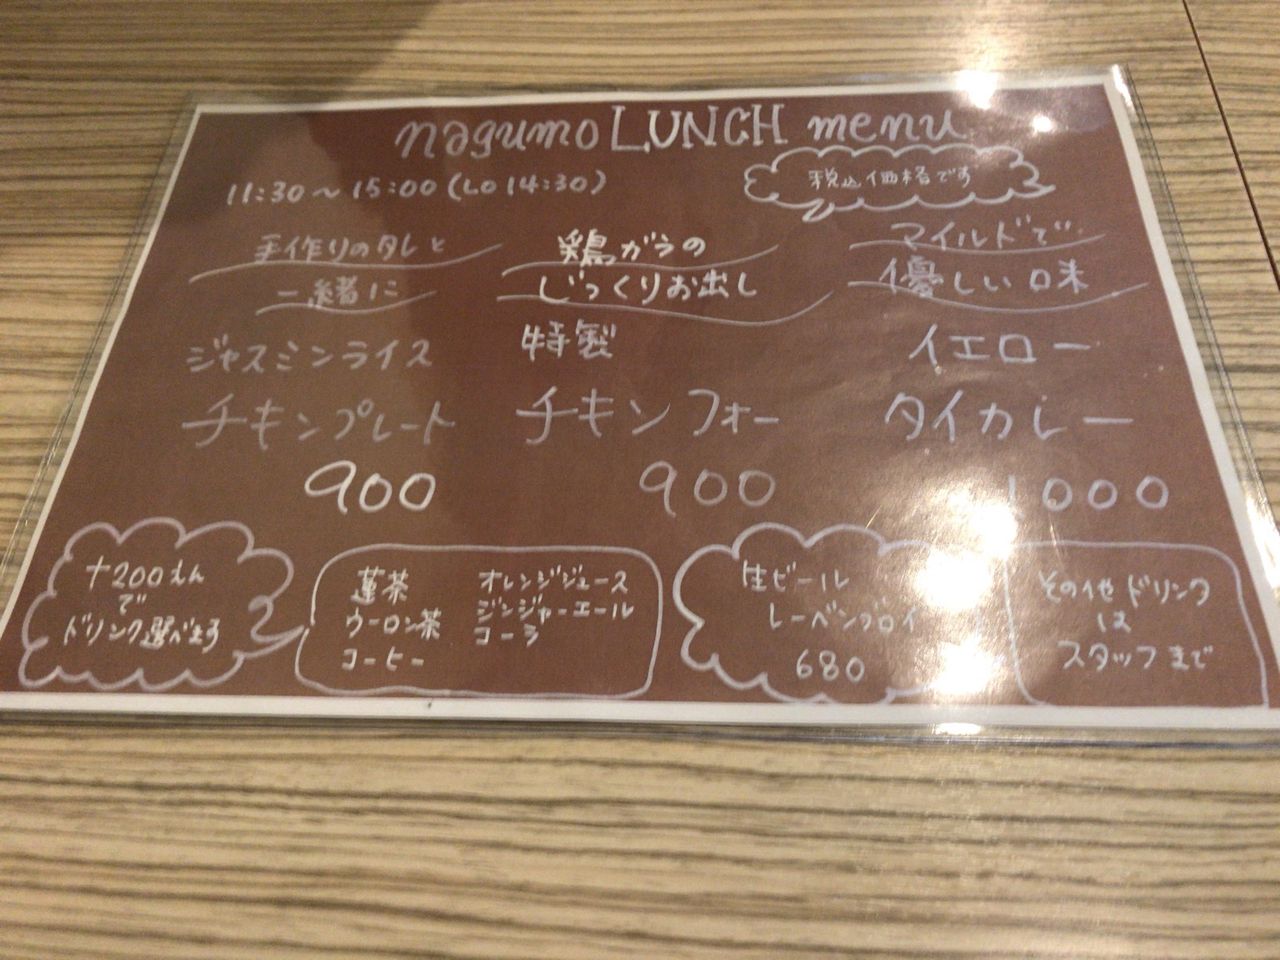 nagumo LUNCH menu
11:30～15:00(LO 14:30)
税込価格です
手作りのタレと
一緒に
ジャスミンライス
チキンプレート
900
鶏ガラの
じっくりお出し
特製
チキンフォー
900
マイルドで
優しい口味
イエロー
タイカレー
1000
+200えん
で
ドリンク選べます
蓮茶
ウーロン茶
コーヒー
オレンジジュース
ジンジャーエール
コーラ
生ビール
レーベンブロイ
680
その他ドリンク
は
スタッフまで